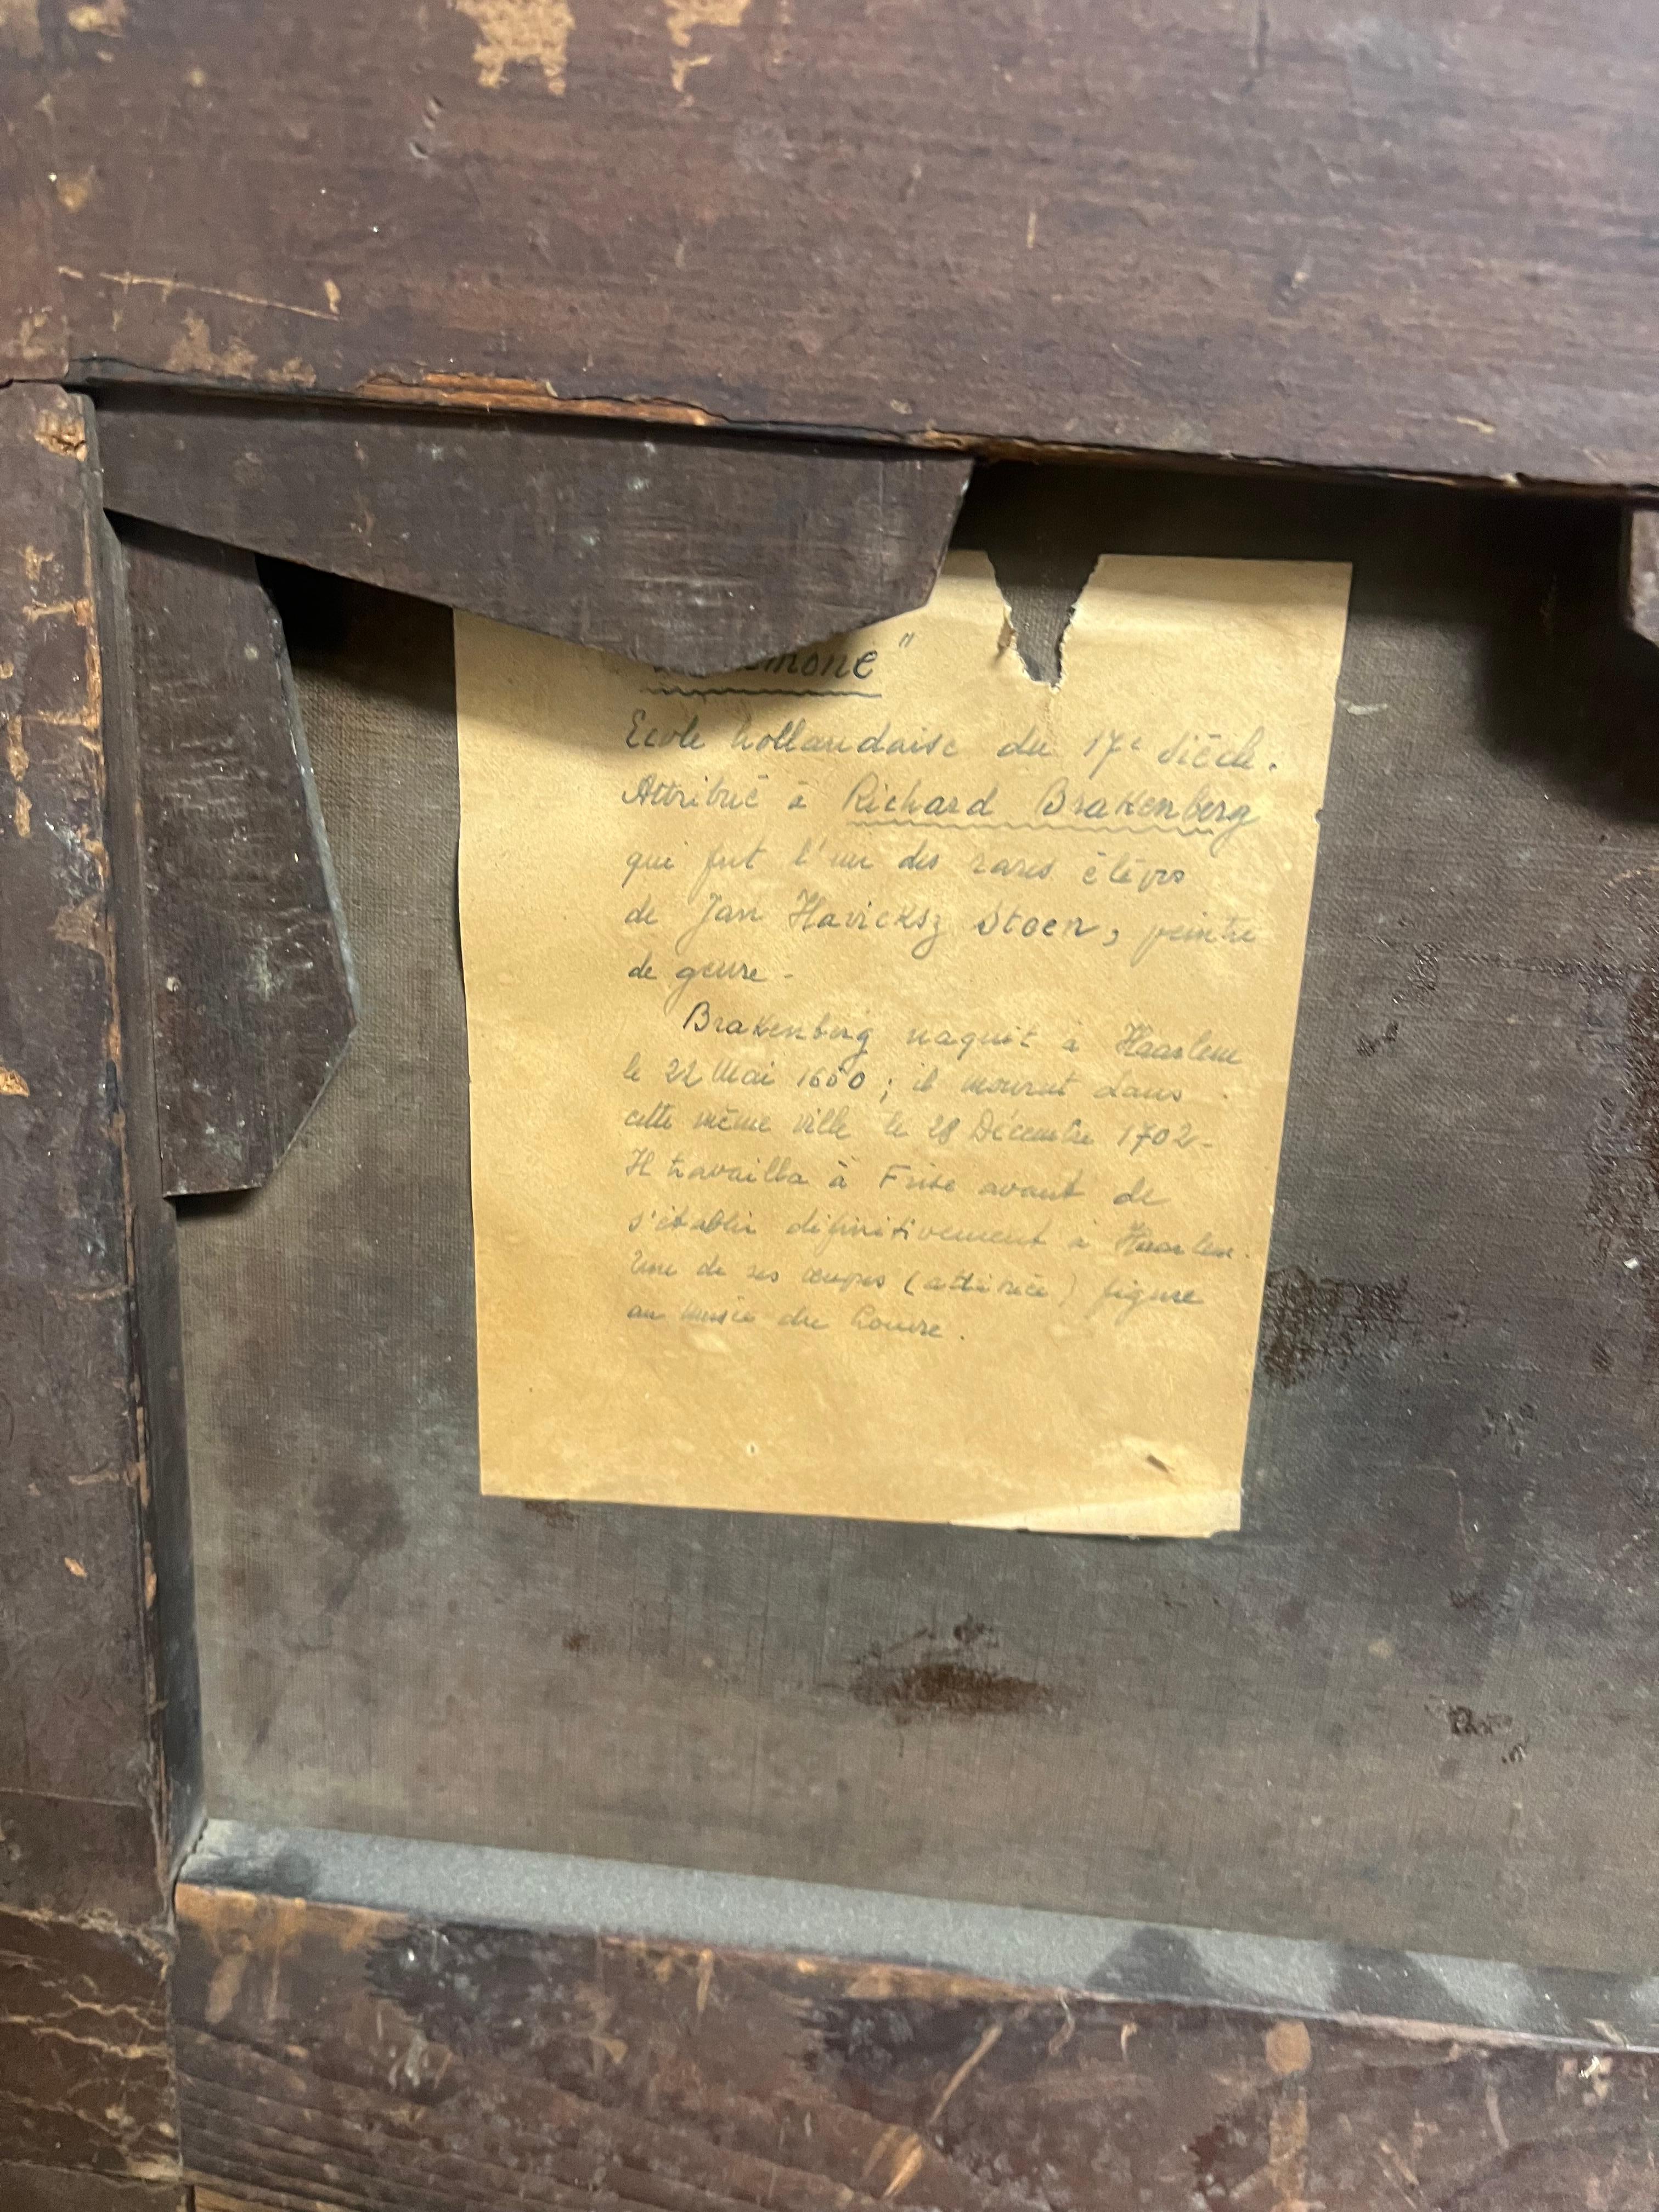 mone"
Ecole hollandaise du 17e siècle.
Attribué à Richard Brakenberg
qui fut l'un des rares élèves
de Jan Havicksz Steen, peintre
de genre -
Brakenberg naquit à Haarlem
le 22 Mai 1650 ; il mourut dans
cette même ville le 28 Décembre 1702 -
Il travailla à Frise avant de
s'établir définitivement à Haarlem.
Une de ses œuvres (attribuée) figure
au musée du Louvre.